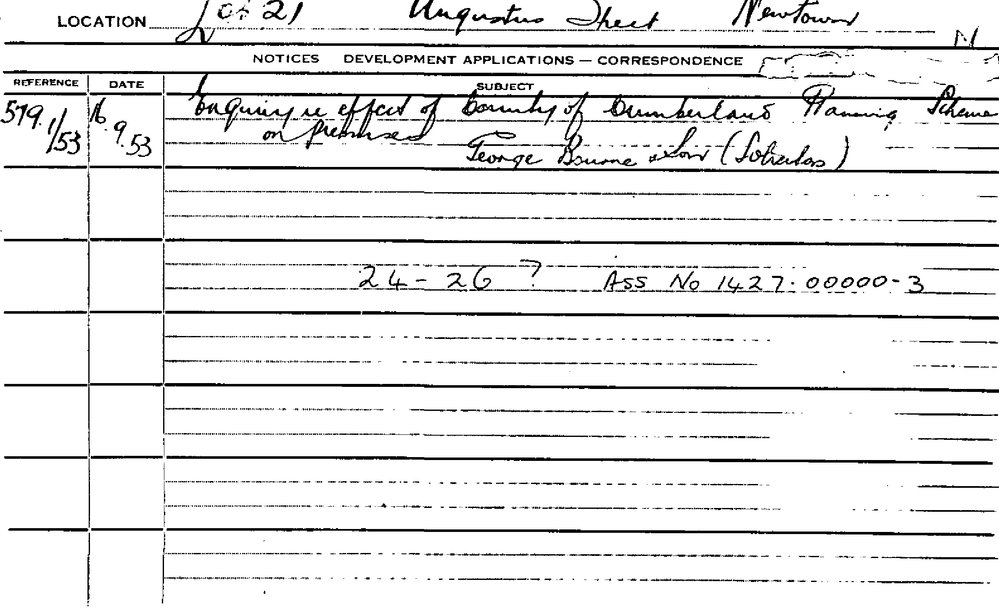 LOCATION Lot 21 Augustus Street Newtown N
NOTICES DEVELOPMENT APPLICATIONS — CORRESPONDENCE
REFERENCE DATE SUBJECT
579.1/53 16.9.53 Enquiry re effect of County of Cumberland Planning Scheme
on premises
George Bourne & Son (Solicitors)
24-26 ? Ass No 1427.00000-3